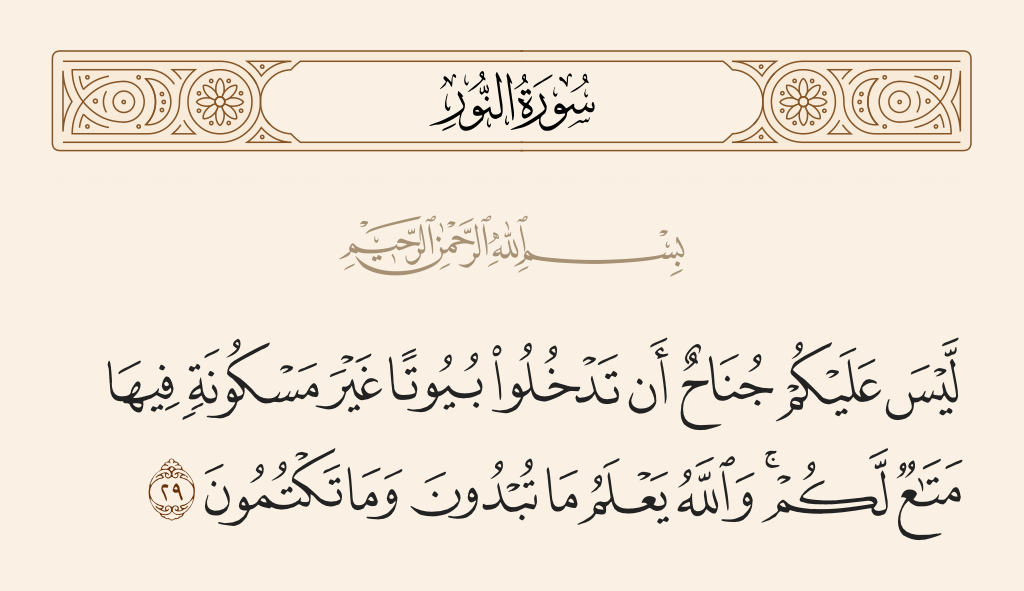 سُورَةُ النُّورِ
بِسْمِ ٱللَّهِ ٱلرَّحْمَٰنِ ٱلرَّحِيمِ
لَّيْسَ عَلَيْكُمْ جُنَاحٌ أَن تَدْخُلُوا۟ بُيُوتًا غَيْرَ مَسْكُونَةٍ فِيهَا
مَتَٰعٌ لَّكُمْ ۚ وَٱللَّهُ يَعْلَمُ مَا تُبْدُونَ وَمَا تَكْتُمُونَ ٢٩